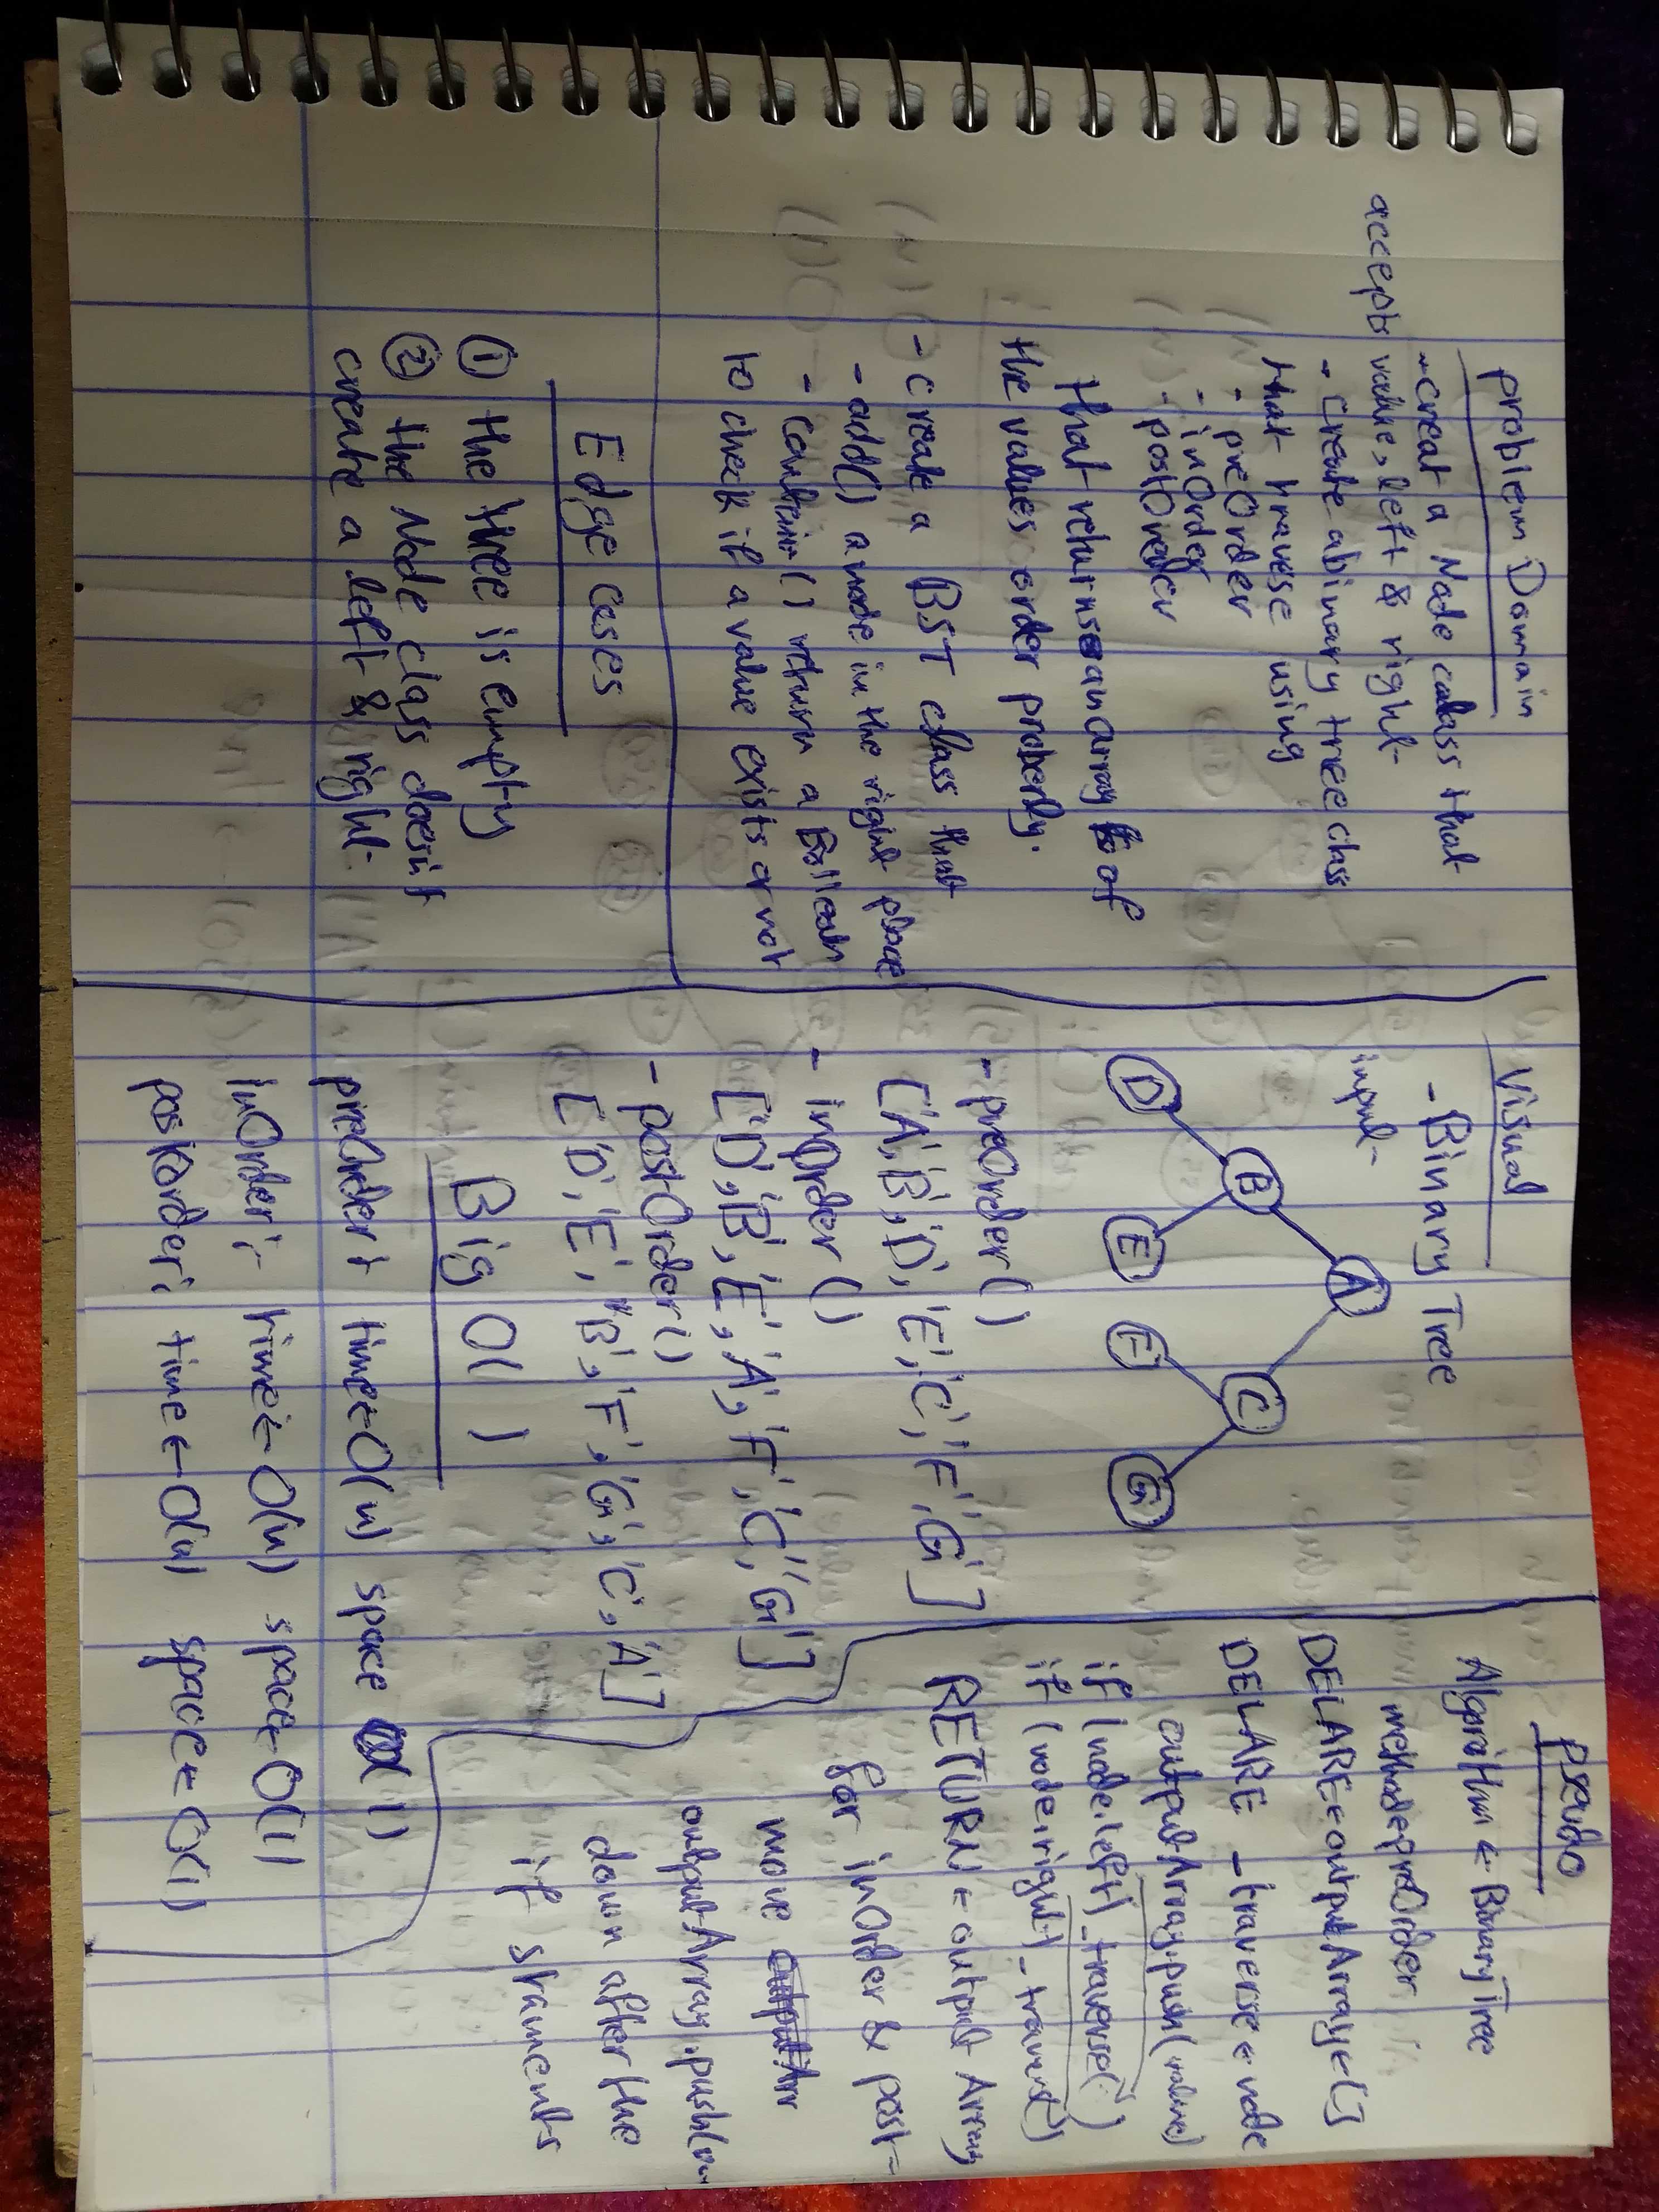 problem Domain
- creat a Node calass that
accepts value, left & right
- create abinary tree class
that traverse using
- preOrder
- inOrder
- postOreder
that returns an array of
the values order proberly.
- create a BST class that
- add() a node in the right place
- contains() return a Bollean
to check if a value exists or not
Edge cases
① the tree is empty
② the Node class doesn't
create a left & right
Visual
- Binary Tree
input
A
B
C
D
E
F
G
- preOrder()
['A','B','D','E','C','F','G']
- inOrder()
['D','B','E','A','F','C','G']
- postOrder()
['D','E','B','F','G','C','A']
Big O( )
preOrder: time ← O(n) space O(1)
inOrder: time ← O(n) space ← O(1)
postOrder: time ← O(n) space ← O(1)
pseudo
Algorithm ← BinaryTree
method ← preOrder
DELARE ← outputArray ← []
DELARE _traverse ← node
outputArray.push(
if (node.left) _traverse()
if (node.right) _traverse()
RETURN ← output Array
for inOrder & post-
move
outputArray.push(
down after the
if staments